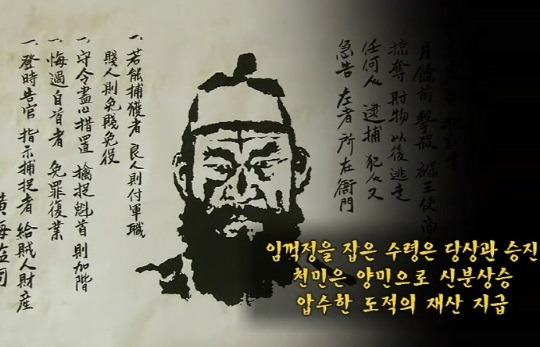 月餘前擊殺
掠奪財物以後逃走
任何人 逮捕 犯人又
急告 左者 所左衙門
一. 若能捕獲者 良人則付軍職
賤人則免賤免役
一. 守令盡心措置 擒捉魁首則加階
一. 悔過自首者 免罪復業
一. 登時告官 指示捕捉者 給賊人財産
黃海監司
임꺽정을 잡은 수령은 당상관 승진
천민은 양민으로 신분상승
압수한 도적의 재산 지급